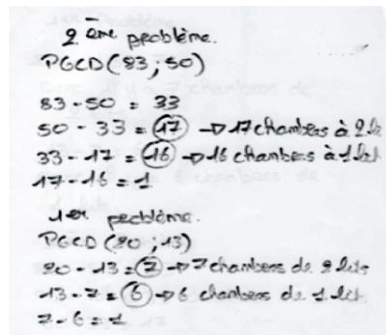 2ème problème.
PGCD(83;50)
83-50 = 33
50-33=17 → 17 chambres à 2 lit
33-17=16 → 16 chambres à 1 lit
17-16=1
1er problème.
PGCD(20;13)
20-13=7 → 7 chambres de 2 lits
13-7=6 → 6 chambres de 1 lit
7-6=1